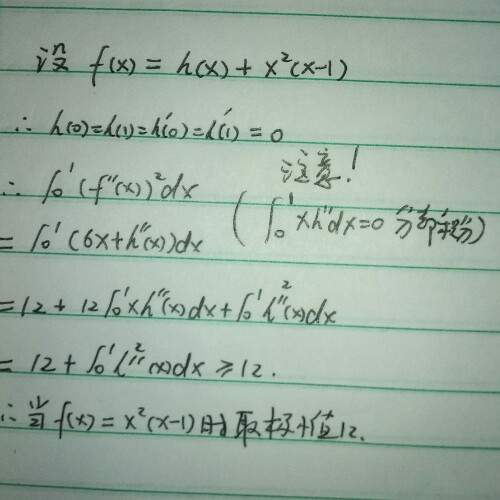 设 f(x) = h(x) + x²(x-1)
∴ h(0)=h(1)=h'(0)=h'(1)=0
注意!
∴ ∫₀¹(f''(x))²dx
(∫₀¹xh''dx=0 分部积分)
= ∫₀¹(6x+h''(x))dx
=12+12∫₀¹xh''(x)dx+∫₀¹h''²(x)dx
=12+∫₀¹h''²(x)dx≥12.
∴当 f(x)=x²(x-1)时取极小值12.